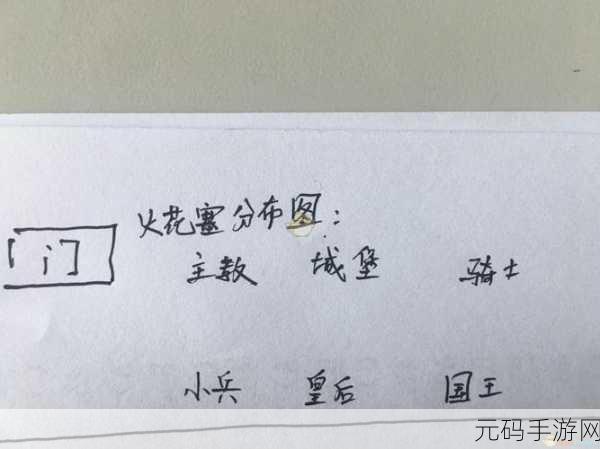 火花塞分布图：
门
主教 城堡 骑士
小兵 皇后 国王
元码手游网